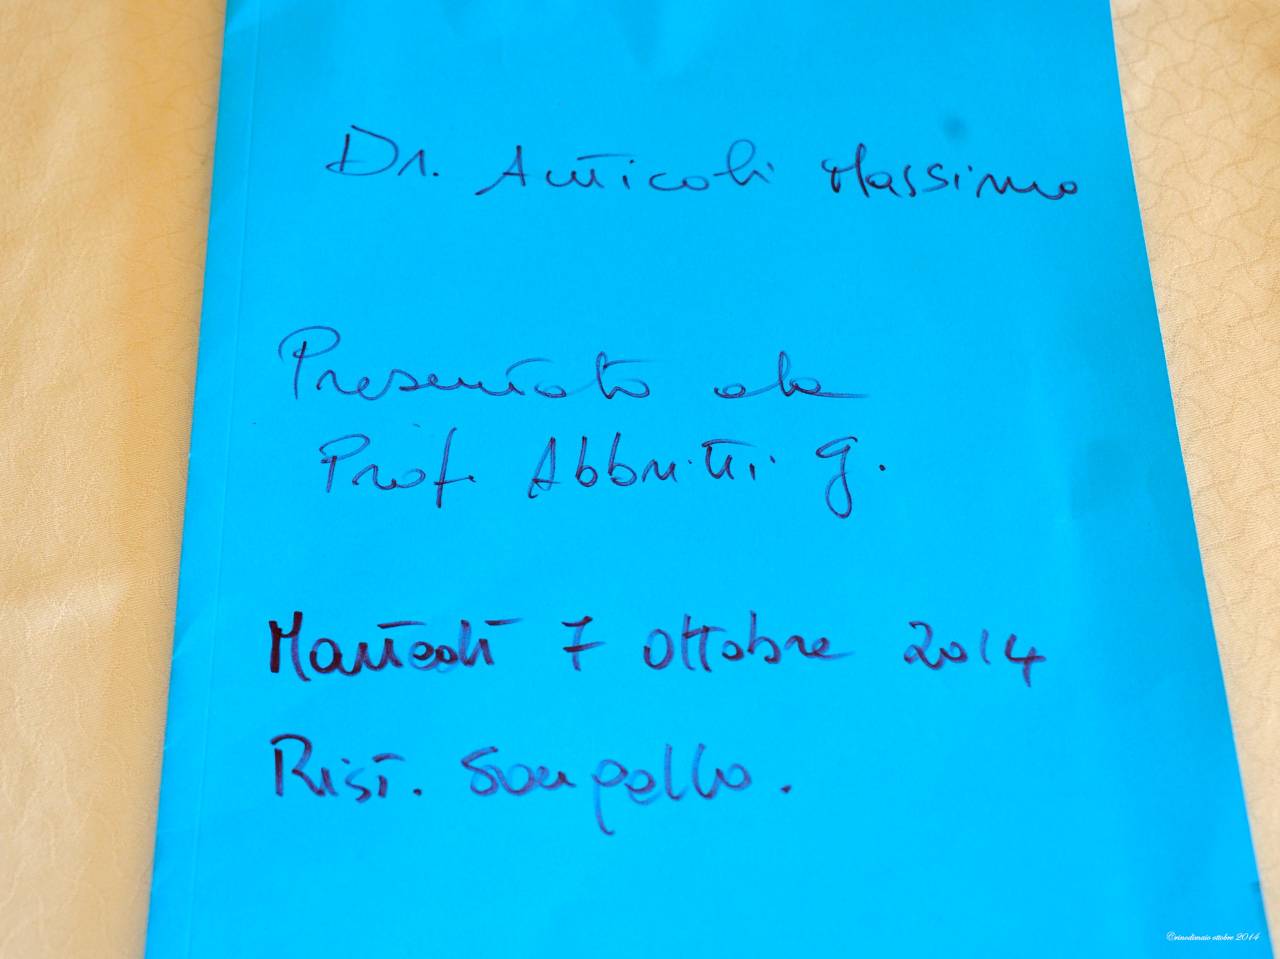 Dr. Anticoli Massimo
Presentato da
Prof. Abbritti G.
Martedì 7 Ottobre 2014
Rist. Sangallo.
©rinodimaio ottobre 2014